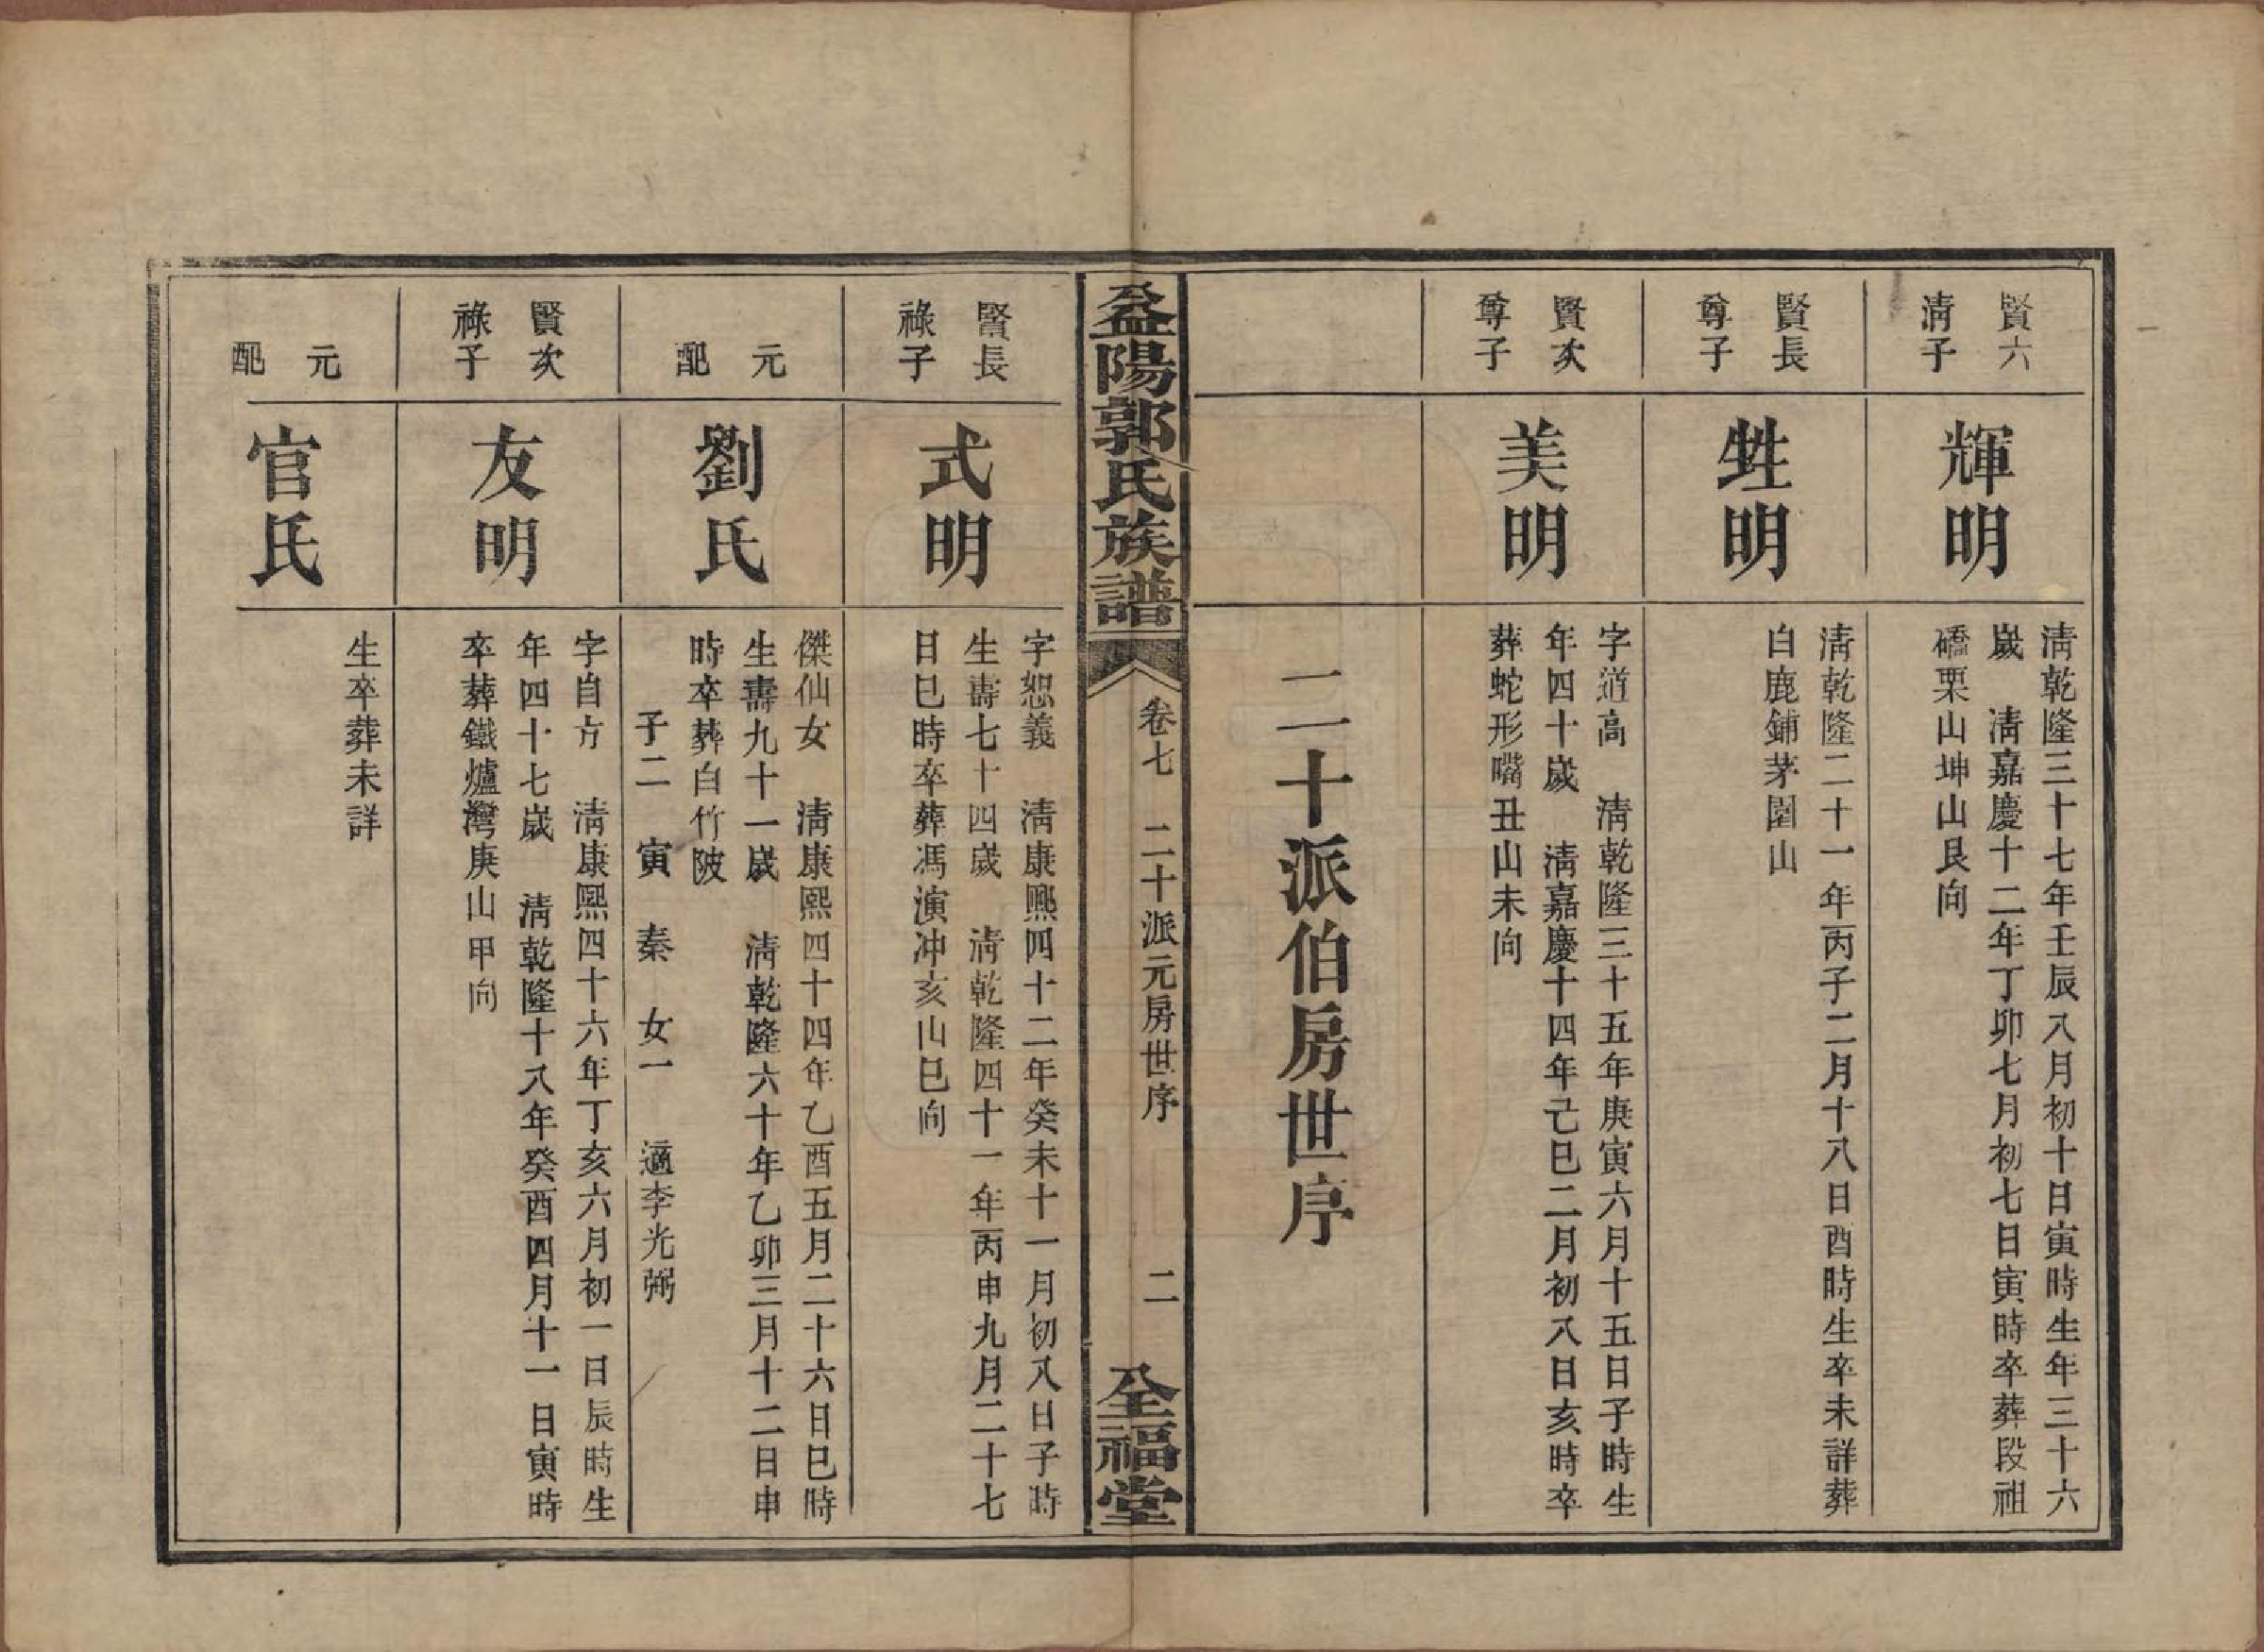 賢六
清子
輝明
清乾隆三十七年壬辰八月初十日寅時生年三十六
歲　清嘉慶十二年丁卯七月初七日寅時卒葬段祖
礄栗山坤山艮向
賢長
尊子
甡明
清乾隆二十一年丙子二月十八日酉時生卒未詳葬
白鹿鋪茅圍山
賢次
尊子
美明
字道高　清乾隆三十五年庚寅六月十五日子時生
年四十歲　清嘉慶十四年己巳二月初八日亥時卒
葬蛇形嘴丑山未向
二十派伯房世序
益陽郭氏族譜
卷七　二十派元房世序
二
全福堂
賢長
祿子
式明
字恕義　清康熙四十二年癸未十一月初八日子時
生壽七十四歲　清乾隆四十一年丙申九月二十七
日巳時卒葬馮演冲亥山巳向
元
配
劉氏
傑仙女　清康熙四十四年乙酉五月二十六日巳時
生壽九十一歲　清乾隆六十年乙卯三月十二日申
時卒葬白竹陂
子二　寅　秦　女一　適李光弼
賢次
祿子
友明
字自方　清康熙四十六年丁亥六月初一日辰時生
年四十七歲　清乾隆十八年癸酉四月十一日寅時
卒葬鐵爐灣庚山甲向
元
配
官氏
生卒葬未詳